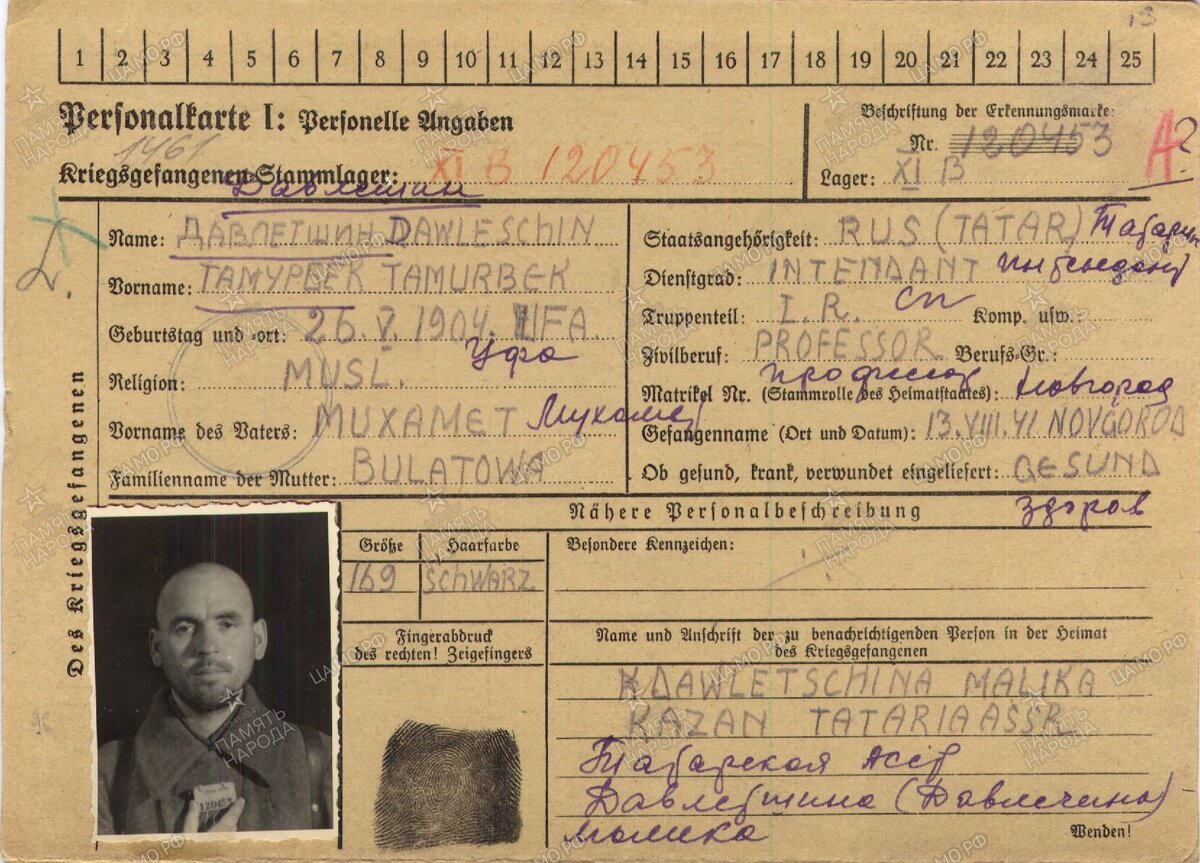 13
1 2 3 4 5 6 7 8 9 10 11 12 13 14 15 16 17 18 19 20 21 22 23 24 25
Personalkarte I: Personelle Angaben
Beschriftung der Erkennungsmarke
1461
Nr. 120453
A?
Kriegsgefangenen-Stammlager: XI B 120453
Lager: XI B
Давлешин
Des Kriegsgefangenen
Name: ДАВЛЕТШИН DAWLESCHIN
Vorname: ТАМУРБЕК TAMURBEK
Geburtstag und -ort: 26.V.1904. UFA.
Уфа
Religion: MUSL.
Vorname des Vaters: MUXAMET Мухамет
Familienname der Mutter: BULATOWA
Staatsangehörigkeit: RUS (TATAR) Татарин
Dienstgrad: INTENDANT Интендант
Truppenteil: I.R. сп Komp. usw.:
Zivilberuf: PROFESSOR Berufs-Gr.:
профессор
Matrikel Nr. (Stammrolle des Heimatstaates): Новгород
Gefangenname (Ort und Datum): 13.VIII.41 NOVGOROD
Ob gesund, krank, verwundet eingeliefert: GESUND
здоров
Nähere Personalbeschreibung
Größe Haarfarbe
169 SCHWARZ
Besondere Kennzeichen:
Fingerabdruck
des rechten! Zeigefingers
Name und Anschrift der zu benachrichtigenden Person in der Heimat
des Kriegsgefangenen
DAWLETSCHINA MALIKA
KAZAN TATARIA ASSR
Татарская АССР
Давлетшина (Давлечина)
Малика
Wenden!
120453
ПАМЯТЬ НАРОДА
ЦАМО.РФ